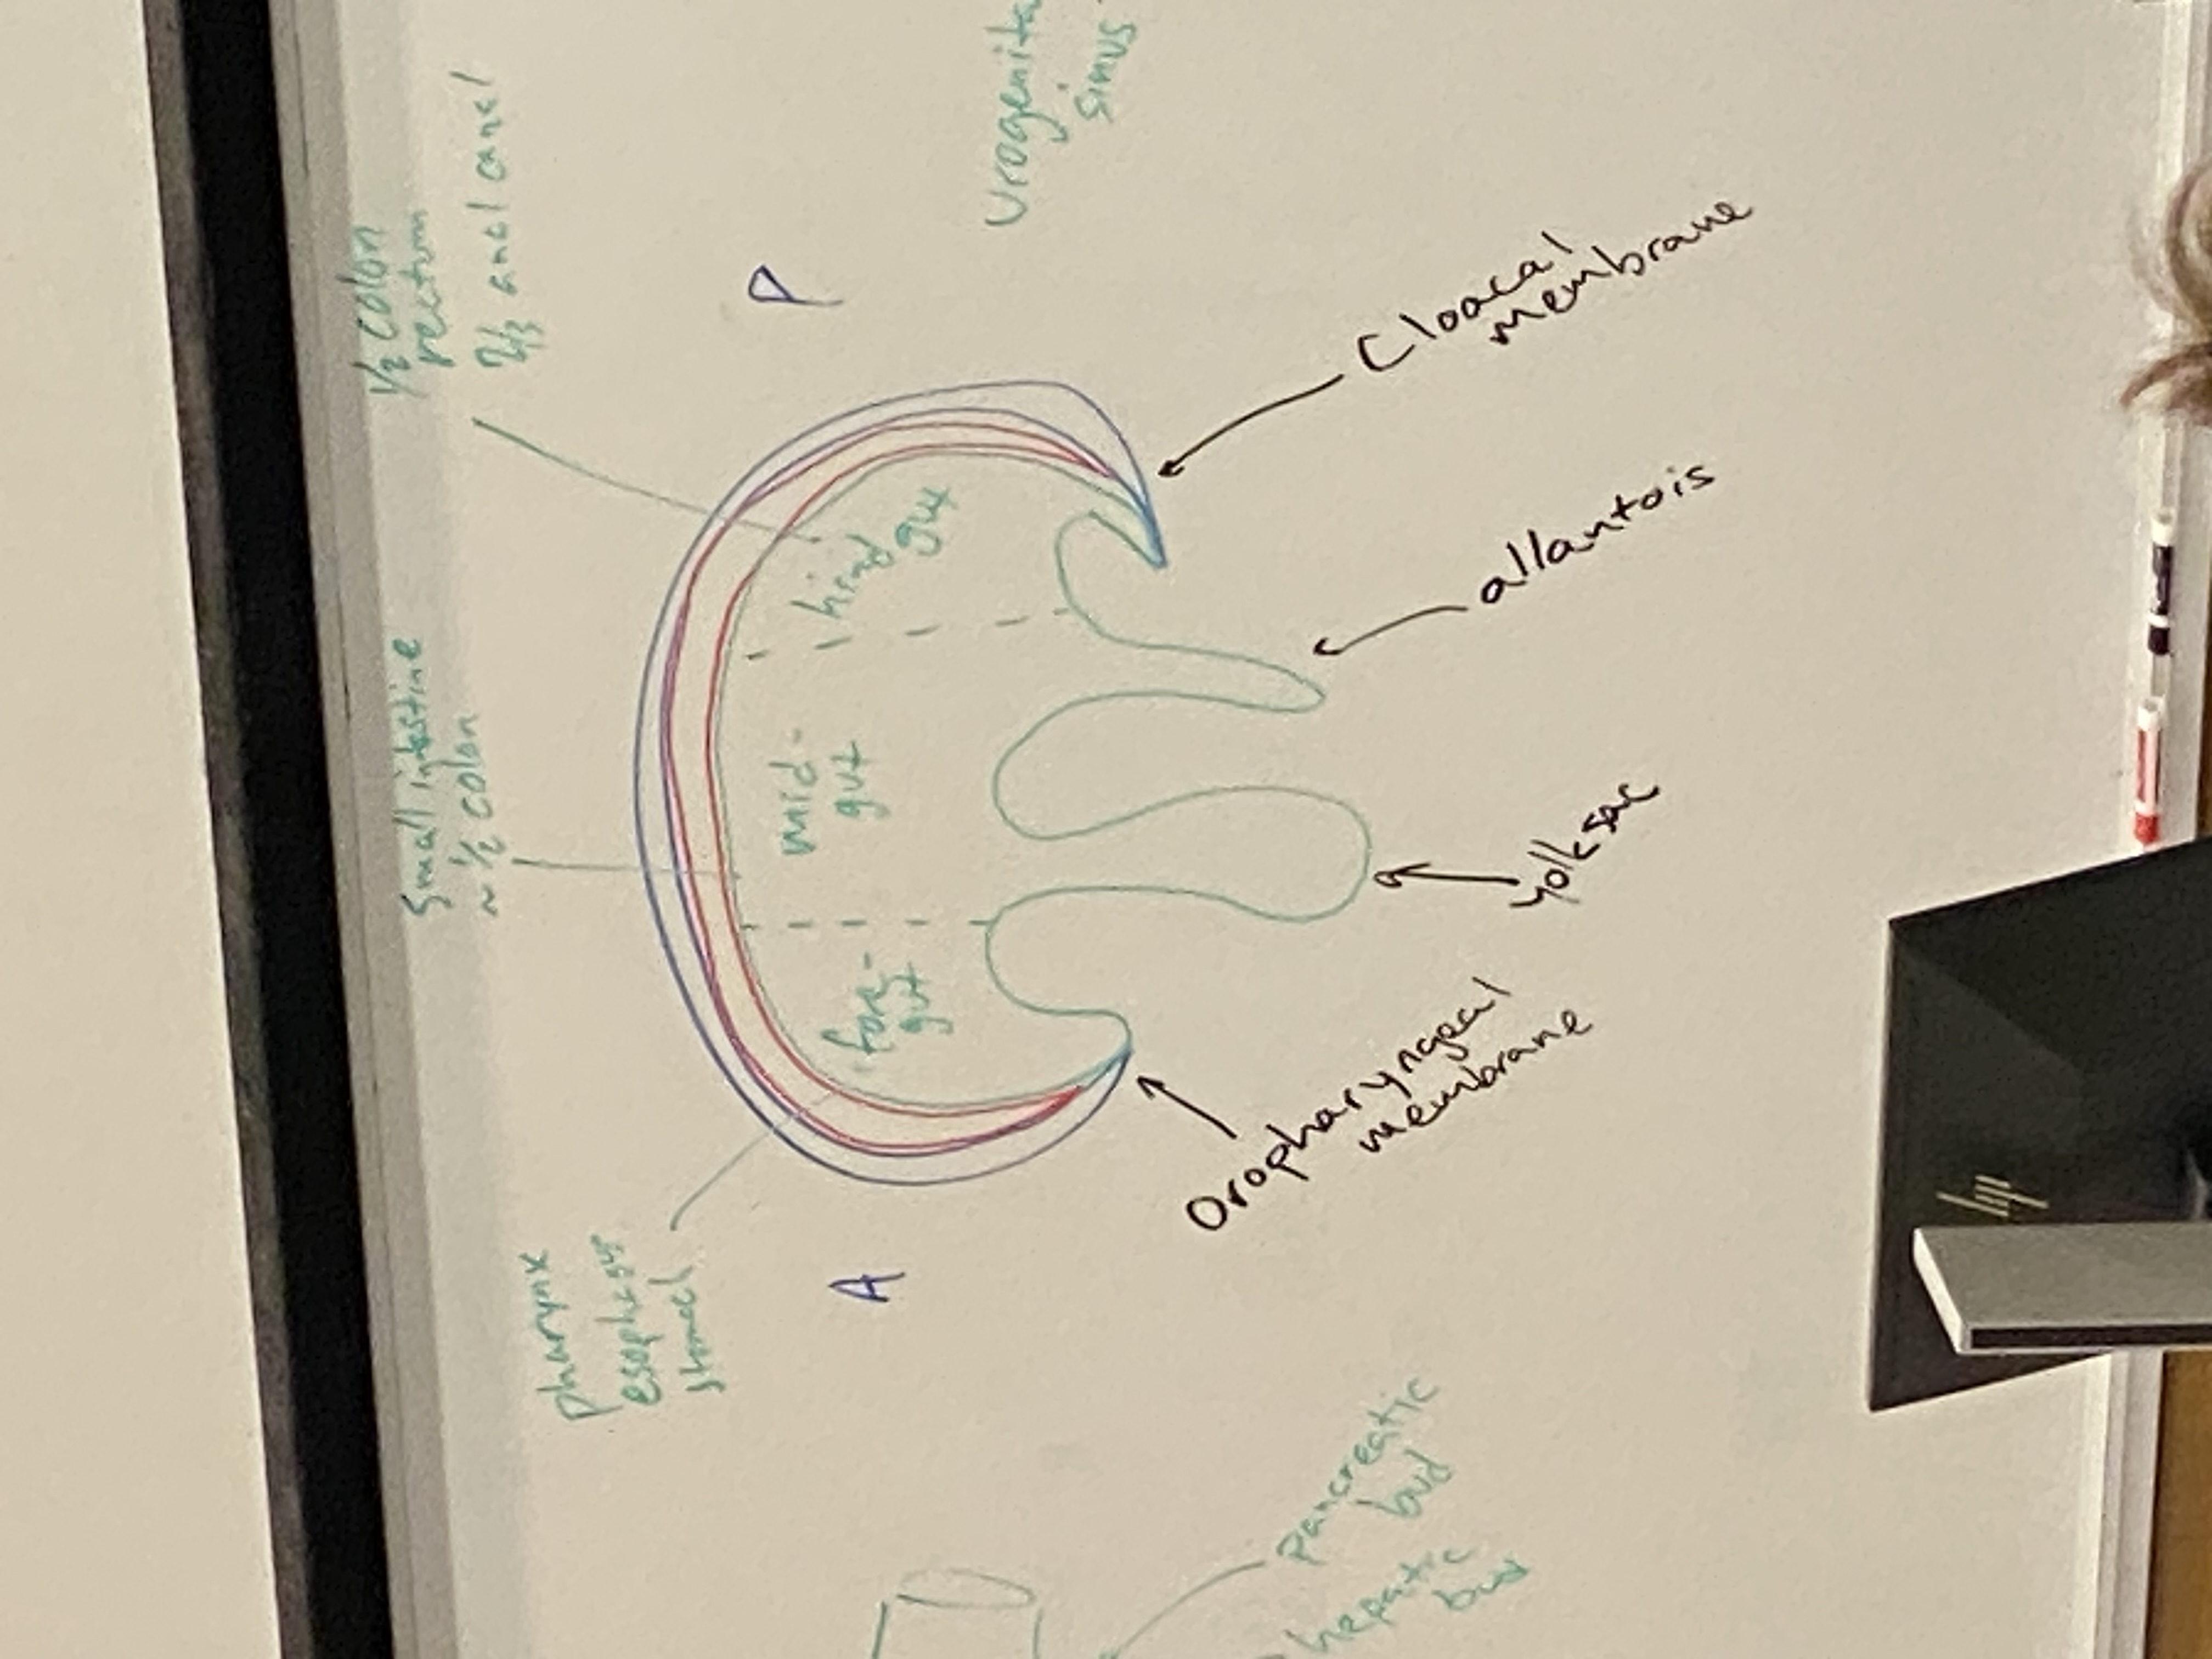 pharynx
esophagus
stomach
small intestine
~ 1/2 colon
1/2 colon
rectum
2/3 anal canal
A
P
fore-
gut
mid-
gut
hind
gut
Oropharyngeal
membrane
yolk sac
allantois
Cloacal
membrane
Pancreatic
bud
hepatic
bud
sinus
hp